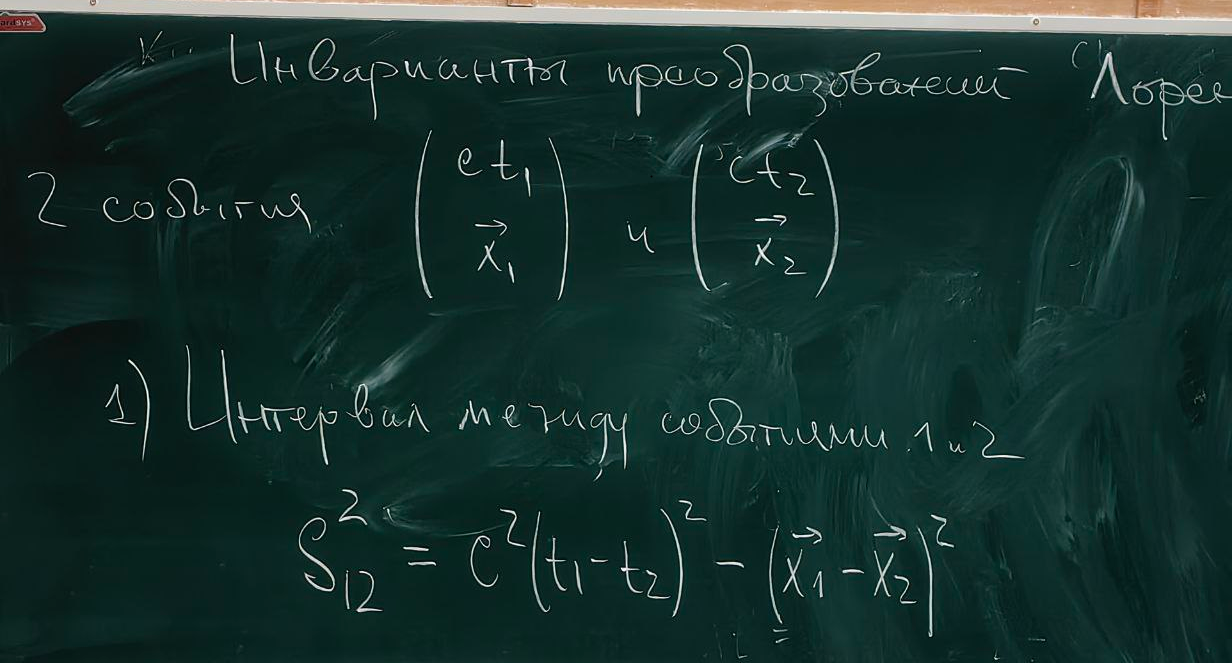 Инварианты преобразований Лорен
2 события (ct₁ x⃗₁) и (ct₂ x⃗₂)
1) Интервал между событиями 1 и 2
S₁₂² = c²(t₁-t₂)² - (x⃗₁-x⃗₂)²